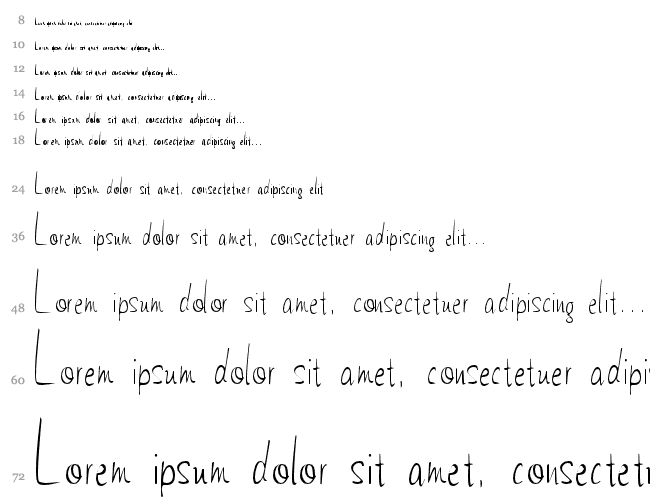 8 Lorem ipsum dolor sit amet, consectetuer adipiscing elit
10 Lorem ipsum dolor sit amet, consectetuer adipiscing elit...
12 Lorem ipsum dolor sit amet, consectetuer adipiscing elit...
14 Lorem ipsum dolor sit amet, consectetuer adipiscing elit...
16 Lorem ipsum dolor sit amet, consectetuer adipiscing elit...
18 Lorem ipsum dolor sit amet, consectetuer adipiscing elit...
24 Lorem ipsum dolor sit amet, consectetuer adipiscing elit
36 Lorem ipsum dolor sit amet, consectetuer adipiscing elit...
48 Lorem ipsum dolor sit amet, consectetuer adipiscing elit...
60 Lorem ipsum dolor sit amet, consectetuer adipi
72 Lorem ipsum dolor sit amet, consectet